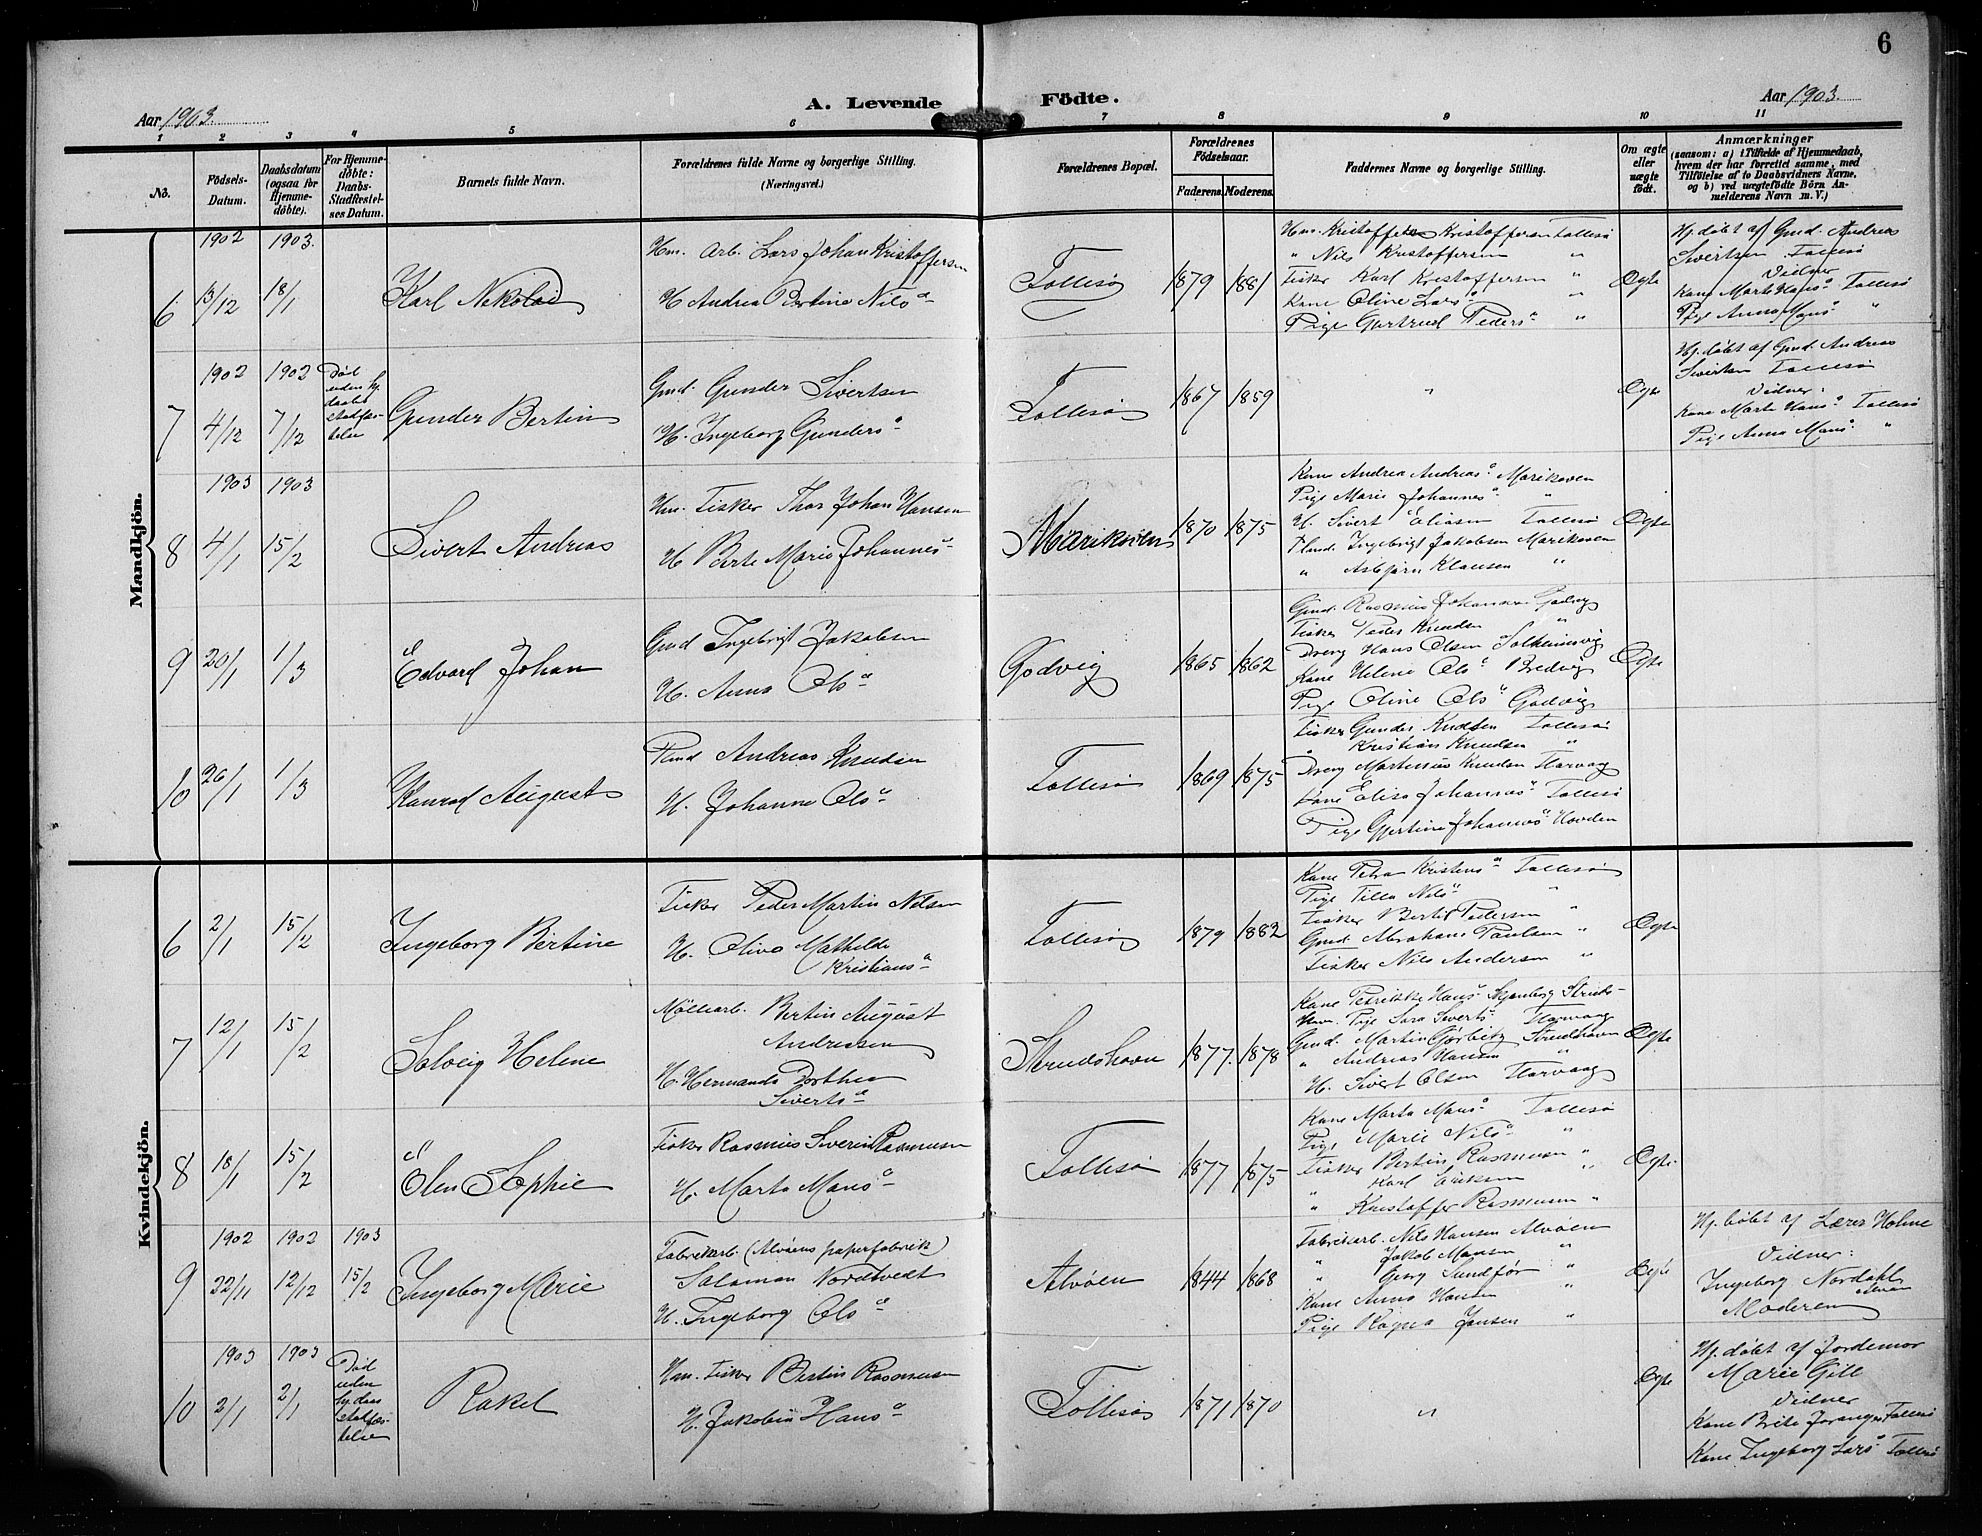 6
Aar 1903.
A. Levende Födte.
Aar 1903.
1 2 3 4 5 6 7 8 9 10 11
No.
Födsels-Datum.
Daabsdatum (ogsaa for Hjemmedöbte).
For Hjemmedöbte: Daabs-Stadfæstelses Datum.
Barnets fulde Navn.
Forældrenes fulde Navne og borgerlige Stilling. (Næringsvei.)
Forældrenes Bopæl.
Forældrenes Födselsaar.
Faderens. Moderens.
Faddernes Navne og borgerlige Stilling.
Om ægte eller uægte födt.
Anmærkninger
(saasom: a) i Tilfælde af Hjemmedaab, hvem der har forrettet samme, med Tilföielse af to Daabsvidners Navne, og b) ved uægtefödte Börn Anmelderens Navn m. V.)
Mandkjön.
6
1902 13/12
1903. 18/1
Karl Nikolai
Hm. Arb. Lars Johan Kristoffersen
H. Andrea Bertine Nilsd
Tollesø
1879 1881
Hm. Kristoffer Kristoffersen Tollesø
" Nils Kristoffersen "
Fisker Karl Kristoffersen "
Kone Oline Larsd "
Pige Gertrud Pedersd "
Ægte
Hj. døbt af Gmd. Andreas
Sivertsen Tollesø
Vidner
Kone Marte Hansd Tollesø
Pige Anna Mansd "
7
1902 4/12
1902 7/12
Død uden hj. daabs stadfæstelse
Gunder Bertin
Gmd. Gunder Sivertsen
H. Ingeborg Gundersd
Tollesø
1867 1859
"
Ægte
Hj. døbt af Gmd. Andreas
Sivertsen Tollesø
Vidner:
Kone Marte Hansd Tollesø
Pige Anna Mansd "
8
1903 4/1
1903 15/2
Sivert Andreas
Hm. Fisker Thor Johan Hansen
H. Berte Marie Johannesd
Marikoven
1870 1875
Kone Andrea Andreasd Marikoven
Pige Marie Johannesd "
H. Sivert Eliasen Tollesø
Plmd. Ingebrigt Jakobsen Marikoven
" Asbjørn Klausen "
Ægte
9
20/1
1/3
Edvard Johan
Gmd Ingebrigt Jakobsen
H. Anna Olsd
Godvig
1865 1862
Gmd. Rasmus Johannes Godvig
Fisker Peder Knudsen "
Dreng Hans Olsen Solheimsvig
Kone Helene Olsd Bredvig
Pige Oline Olsd Godvig
Ægte
10
26/1
1/3
Konrad August
Plmd Andreas Knudsen
H. Johanne Olsd
Tollesø
1869 1875
Fisker Gunder Knudsen Tollesø
" Kristian Knudsen "
Dreng Martinus Knudsen Harvaag
Kone Elisa Johannesd Tollesø
Pige Gjertine Johannesd Hovden
Kvindekjön.
6
2/1
15/2
Ingeborg Bertine
Fisker Peder Martin Nilsen
H. Oliva Mathilde
Kristiansd
Tollesø
1879 1882
Kone Petra Kristensd Tollesø
Pige Tilla Nilsd "
Fisker Bertil Pedersen "
Gmd. Abraham Paulsen "
Fisker Nils Andersen "
Ægte
7
12/1
15/2
Solveig Helene
Møllearb. Bertin August
Andreasen
H. Hermanda Dorthea
Sivertsd
Strudshavn
1877. 1878
Kone Petrikke Hansd Skjenberg Struds-
Havn. Pige Sara Sivertsd Harvaag
Gmd. Martin Gørbitz Strudshavn
" Andreas Hansen "
H. Sivert Olsen Harvaag
Ægte
8
18/1
15/2
Elen Sophie
Fisker Rasmus Severin Rasmussen
H. Marta Mansd
Tollesø
1877 1875
Kone Marta Mansd Tollesø
Pige Marie Nilsd "
Fisker Bertin Rasmussen "
" Karl Eriksen "
" Kristoffer Rasmussen "
Ægte
9
1902 22/11
1902 12/12
1903 15/2
Ingeborg Marie
Fabrikarb. (Alvøens papirfabrik)
Salamon Nordtvedt
H. Ingeborg Olsd
Alvøen
1844 1868
Fabrikarb. Nils Hansen Alvøen
" Jakob Monsen "
" Georg Sundfør "
Kone Anna Hansen "
Pige Ragna Jansen "
Ægte
Hj. døbt af Lærer Holme
Vidner:
Ingeborg Nordahl
Moderen
10
1903 2/1
1903 2/1
Død uden hj. daabs stadfæstelse
Rakel
Hm. Fisker Bertin Rasmussen
H. Jakobine Hansd
Tollesø
1871 1870
"
Ægte
Hj. døbt af Jordemor
Marie Gill
Vidner
Kone Brite Joranger Tollesø
Kone Ingeborg Larsd Tollesø